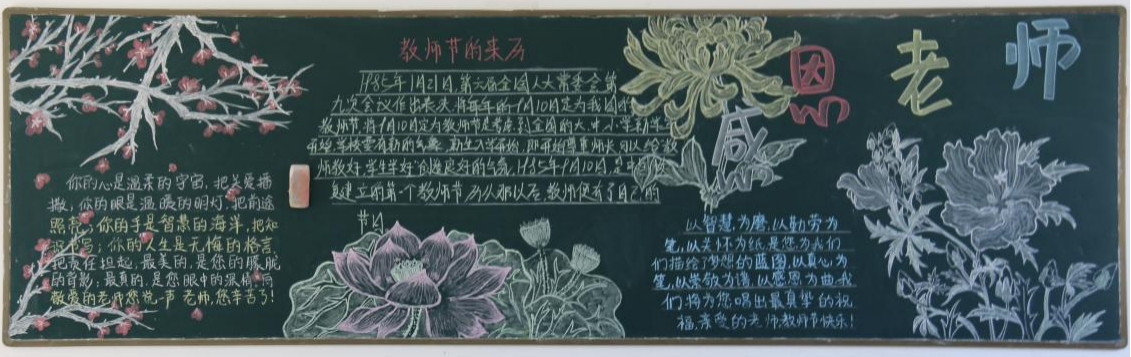 教师节的来历
1985年1月21日,第六届全国人大常委会第
九次会议作出表决,将每年的9月10日定为我国的
教师节,将9月10日定为教师节是考虑到全国的大、中、小学新学年
开始,学校要有新的气象。新生入学开始,即开始尊重师长,可以给教
师教好、学生学好创造良好的气氛。1985年9月10日,是
复建立的第一个教师节,从那以后,教师便有了自己的
节日
感恩老师
你的心是温柔的宇宙,把关爱播
撒;你的眼是温暖的明灯,把前途
照亮;你的手是智慧的海洋,把知
识书写;你的人生是无悔的格言,
把责任担起,最美的,是您的朦胧
的背影;最真的,是您眼中的深情,向
敬爱的老师您说一声 老师,您辛苦了!
以智慧为磨,以勤劳为
笔,以关怀为纸,是您为我们
们描绘了梦想的蓝图,以真心为
笔,以崇敬为谱,以感恩为曲,我
们将为您唱出最真挚的祝
福,亲爱的老师教师节快乐!